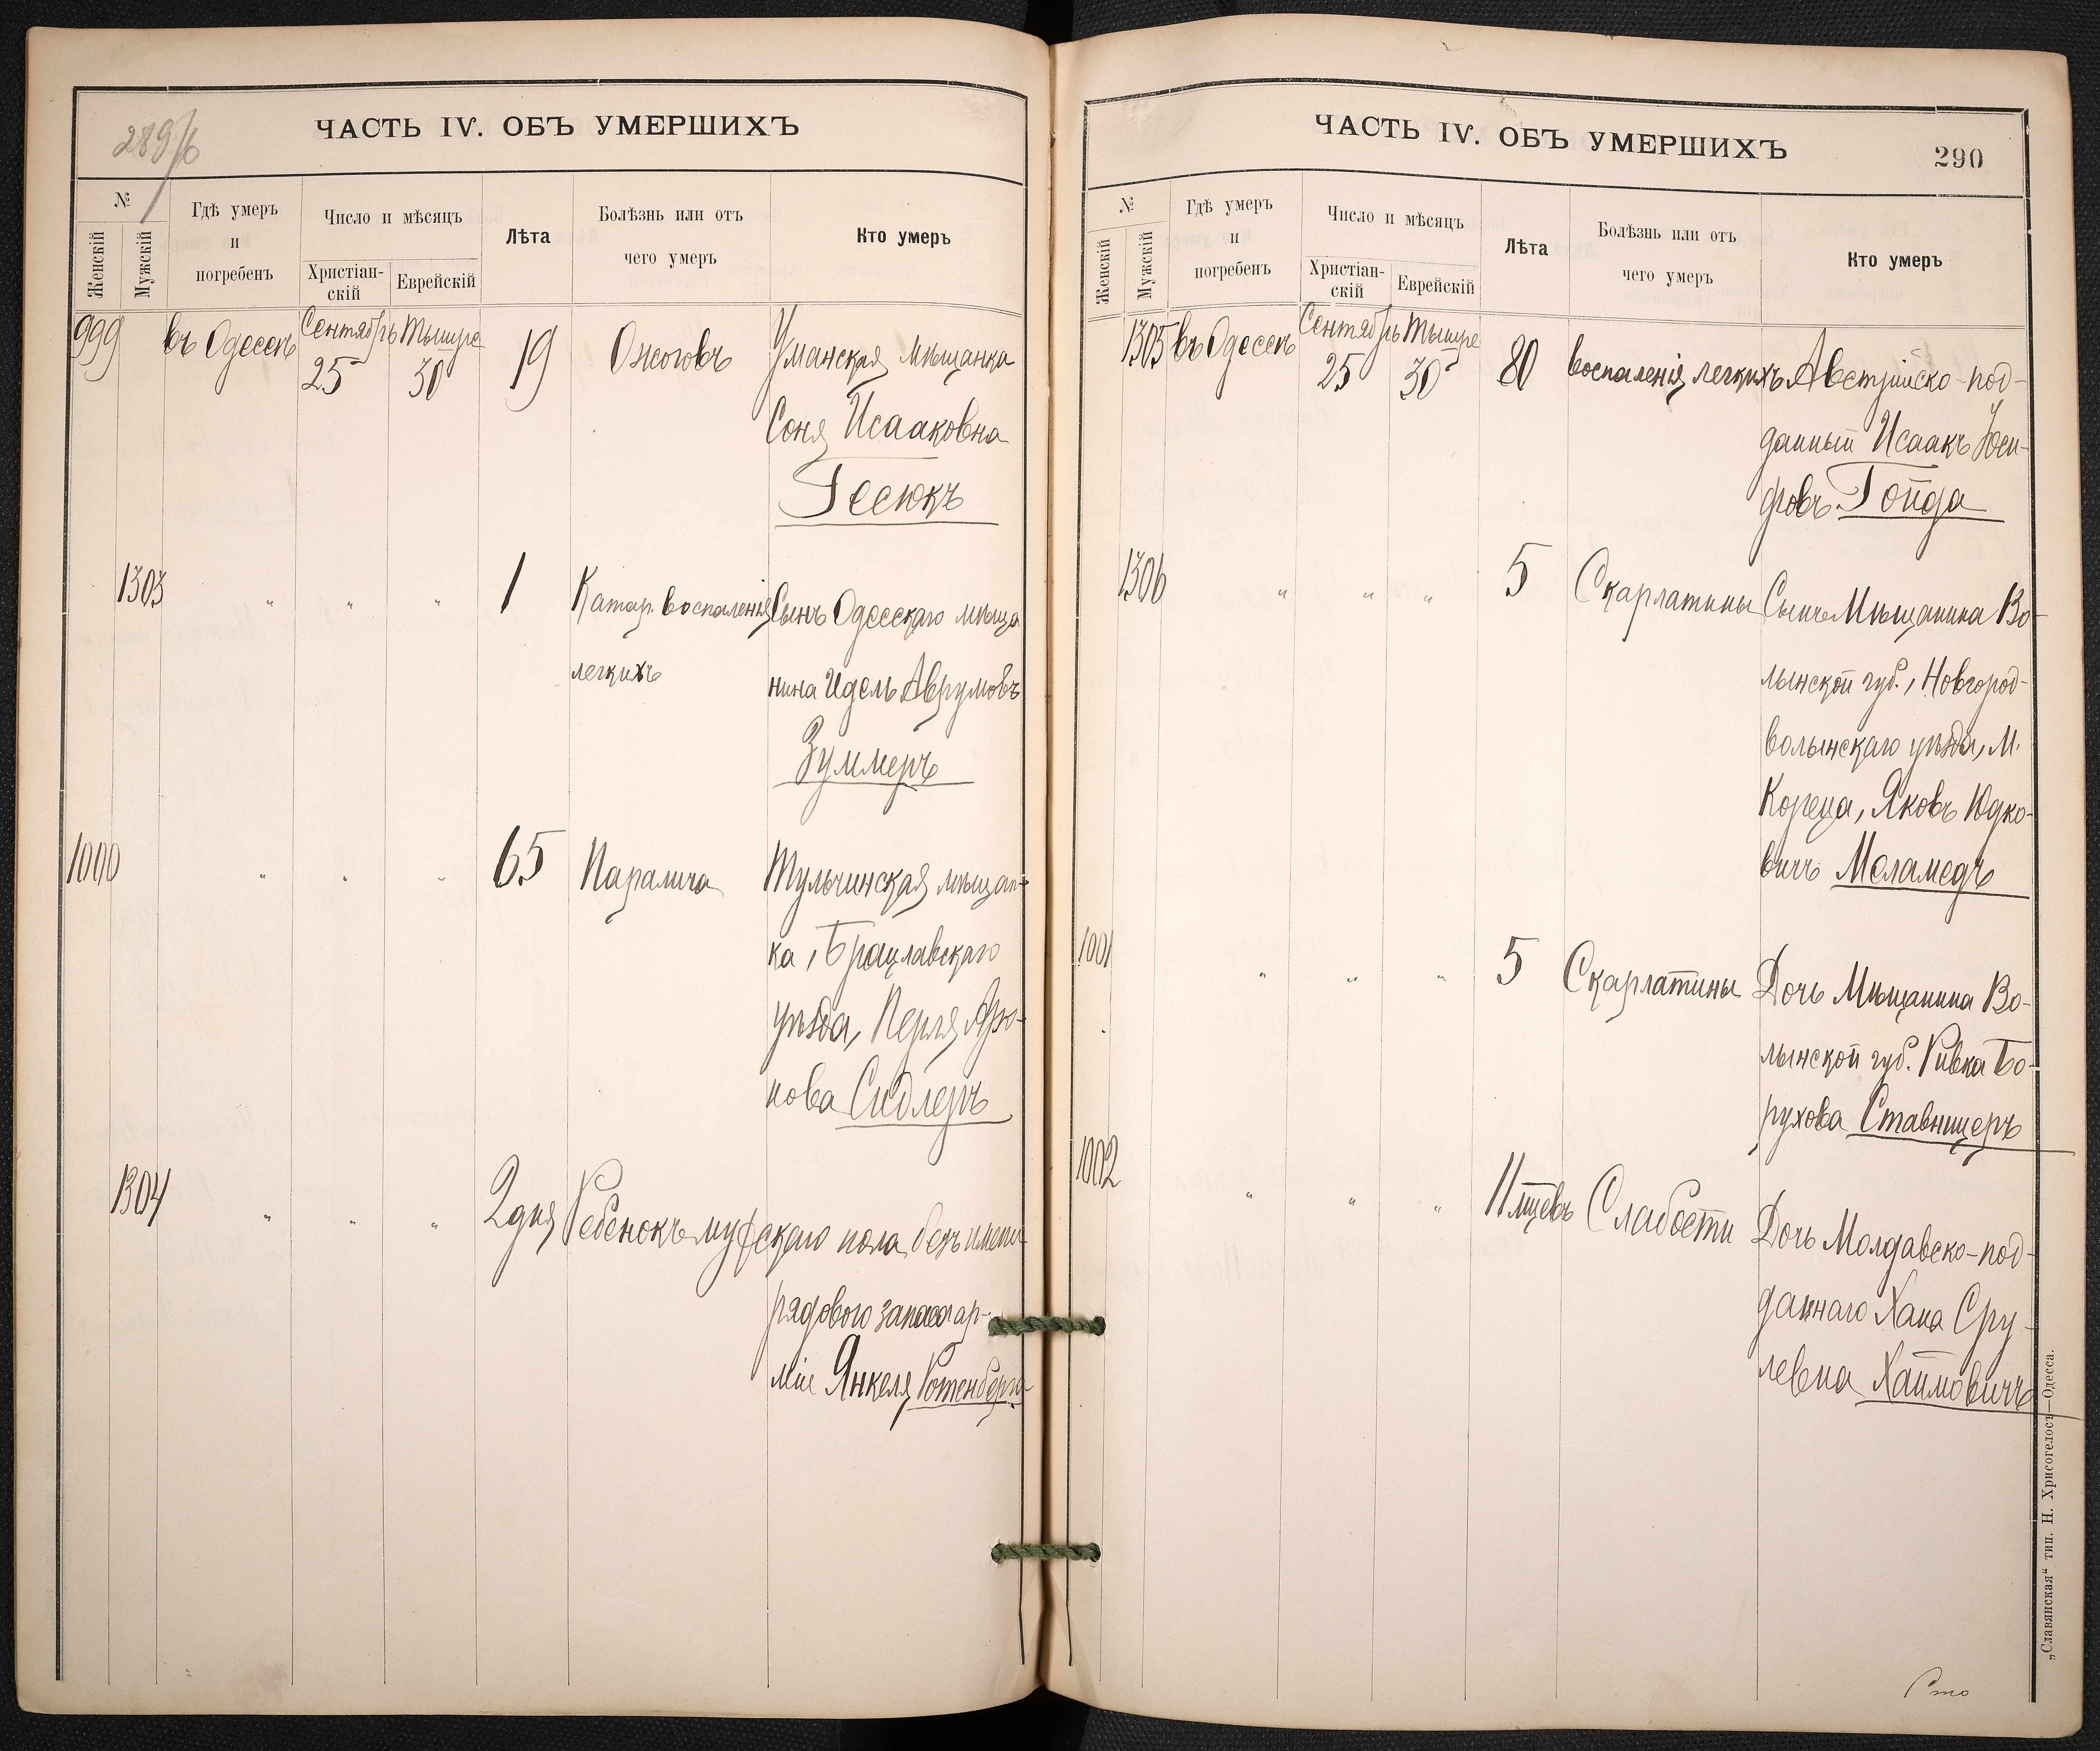 289/6
ЧАСТЬ IV. ОБЪ УМЕРШИХЪ
№
Женскій
Мужскій
Гдѣ умеръ
и
погребенъ
Число и мѣсяцъ
Христіан-
скій
Еврейскій
Лѣта
Болѣзнь или отъ
чего умеръ
Кто умеръ
999 въ Одессѣ Сентябрь 25 Тышре 30 19 Ожоговъ Уманская мѣщанка
Соня Исааковна
Гесюкъ
1303 " " " 1 Катар. воспаленія Сынъ Одесскаго мѣща
легкихъ нина Идель Аврумовъ
Зуммеръ
1000 " " " 65 Паралича Тульчинская мѣщан-
ка, Брацлавскаго
уѣзда, Перля Аро-
нова Сидлеръ
1304 " " " 2 дня Ребенокъ мужскаго пола, безъ имени
рядового запаса ар-
міи Янкеля Ротенберга
ЧАСТЬ IV. ОБЪ УМЕРШИХЪ
290
№
Женскій
Мужскій
Гдѣ умеръ
и
погребенъ
Число и мѣсяцъ
Христіан-
скій
Еврейскій
Лѣта
Болѣзнь или отъ
чего умеръ
Кто умеръ
1305 въ Одессѣ Сентябрь 25 Тышре 30 80 воспаленія легкихъ Австрійско-под-
данный Исаакъ Юси-
фовъ Гойда
1306 " " " 5 Скарлатины Сынъ Мѣщанина Во-
лынской губ., Новгород-
волынскаго уѣзда, М.
Кореца, Яковъ Юдко-
вичъ Меламедъ
1001 " " " 5 Скарлатины Дочь Мѣщанина Во-
лынской губ. Ривка Бо-
рухова Ставницеръ
1002 " " " 11 мцевъ Слабости Дочь Молдавско-под-
даннаго Хана Сру-
левна Хаймовичъ
„Славянская“ тип. Н. Хрисогелосъ—Одесса.